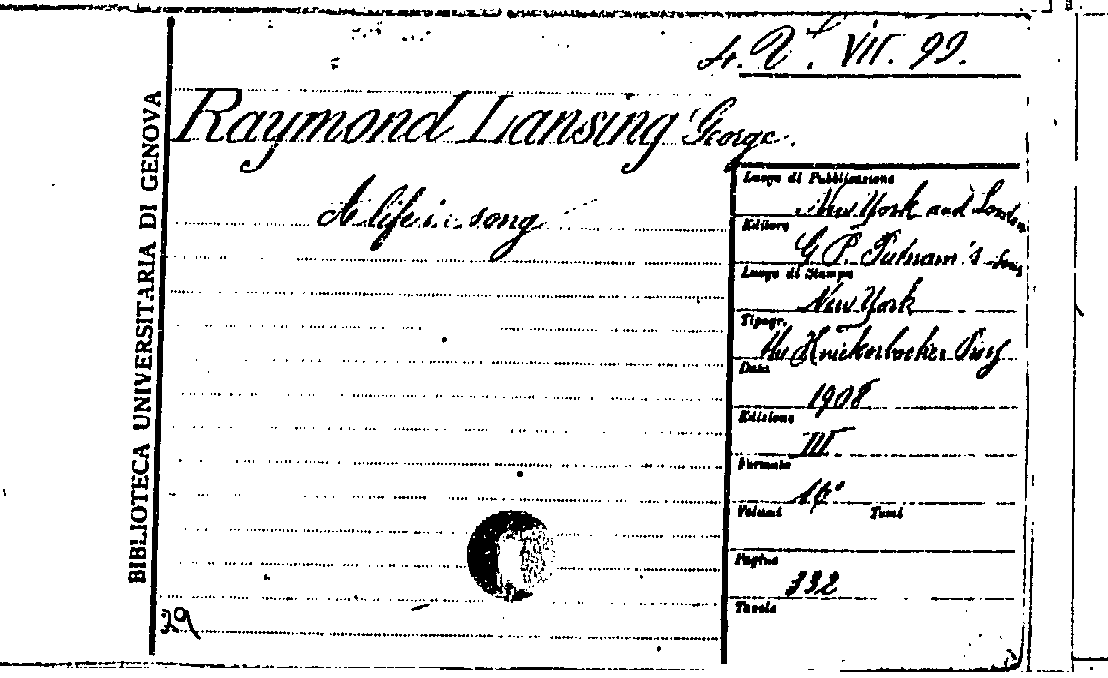 VII. 99.
BIBLIOTECA UNIVERSITARIA DI GENOVA
Raymond Lansing George.
A life in song
Luogo di Pubblicazione
New York and London
Editore
G. P. Putnam's Sons
Luogo di Stampa
New York
Tipogr.
The Knickerbocker Press
Data
1908
Edizione
III
Formato
16°
Volumi Tomi
Pagine
332
Tavole
29